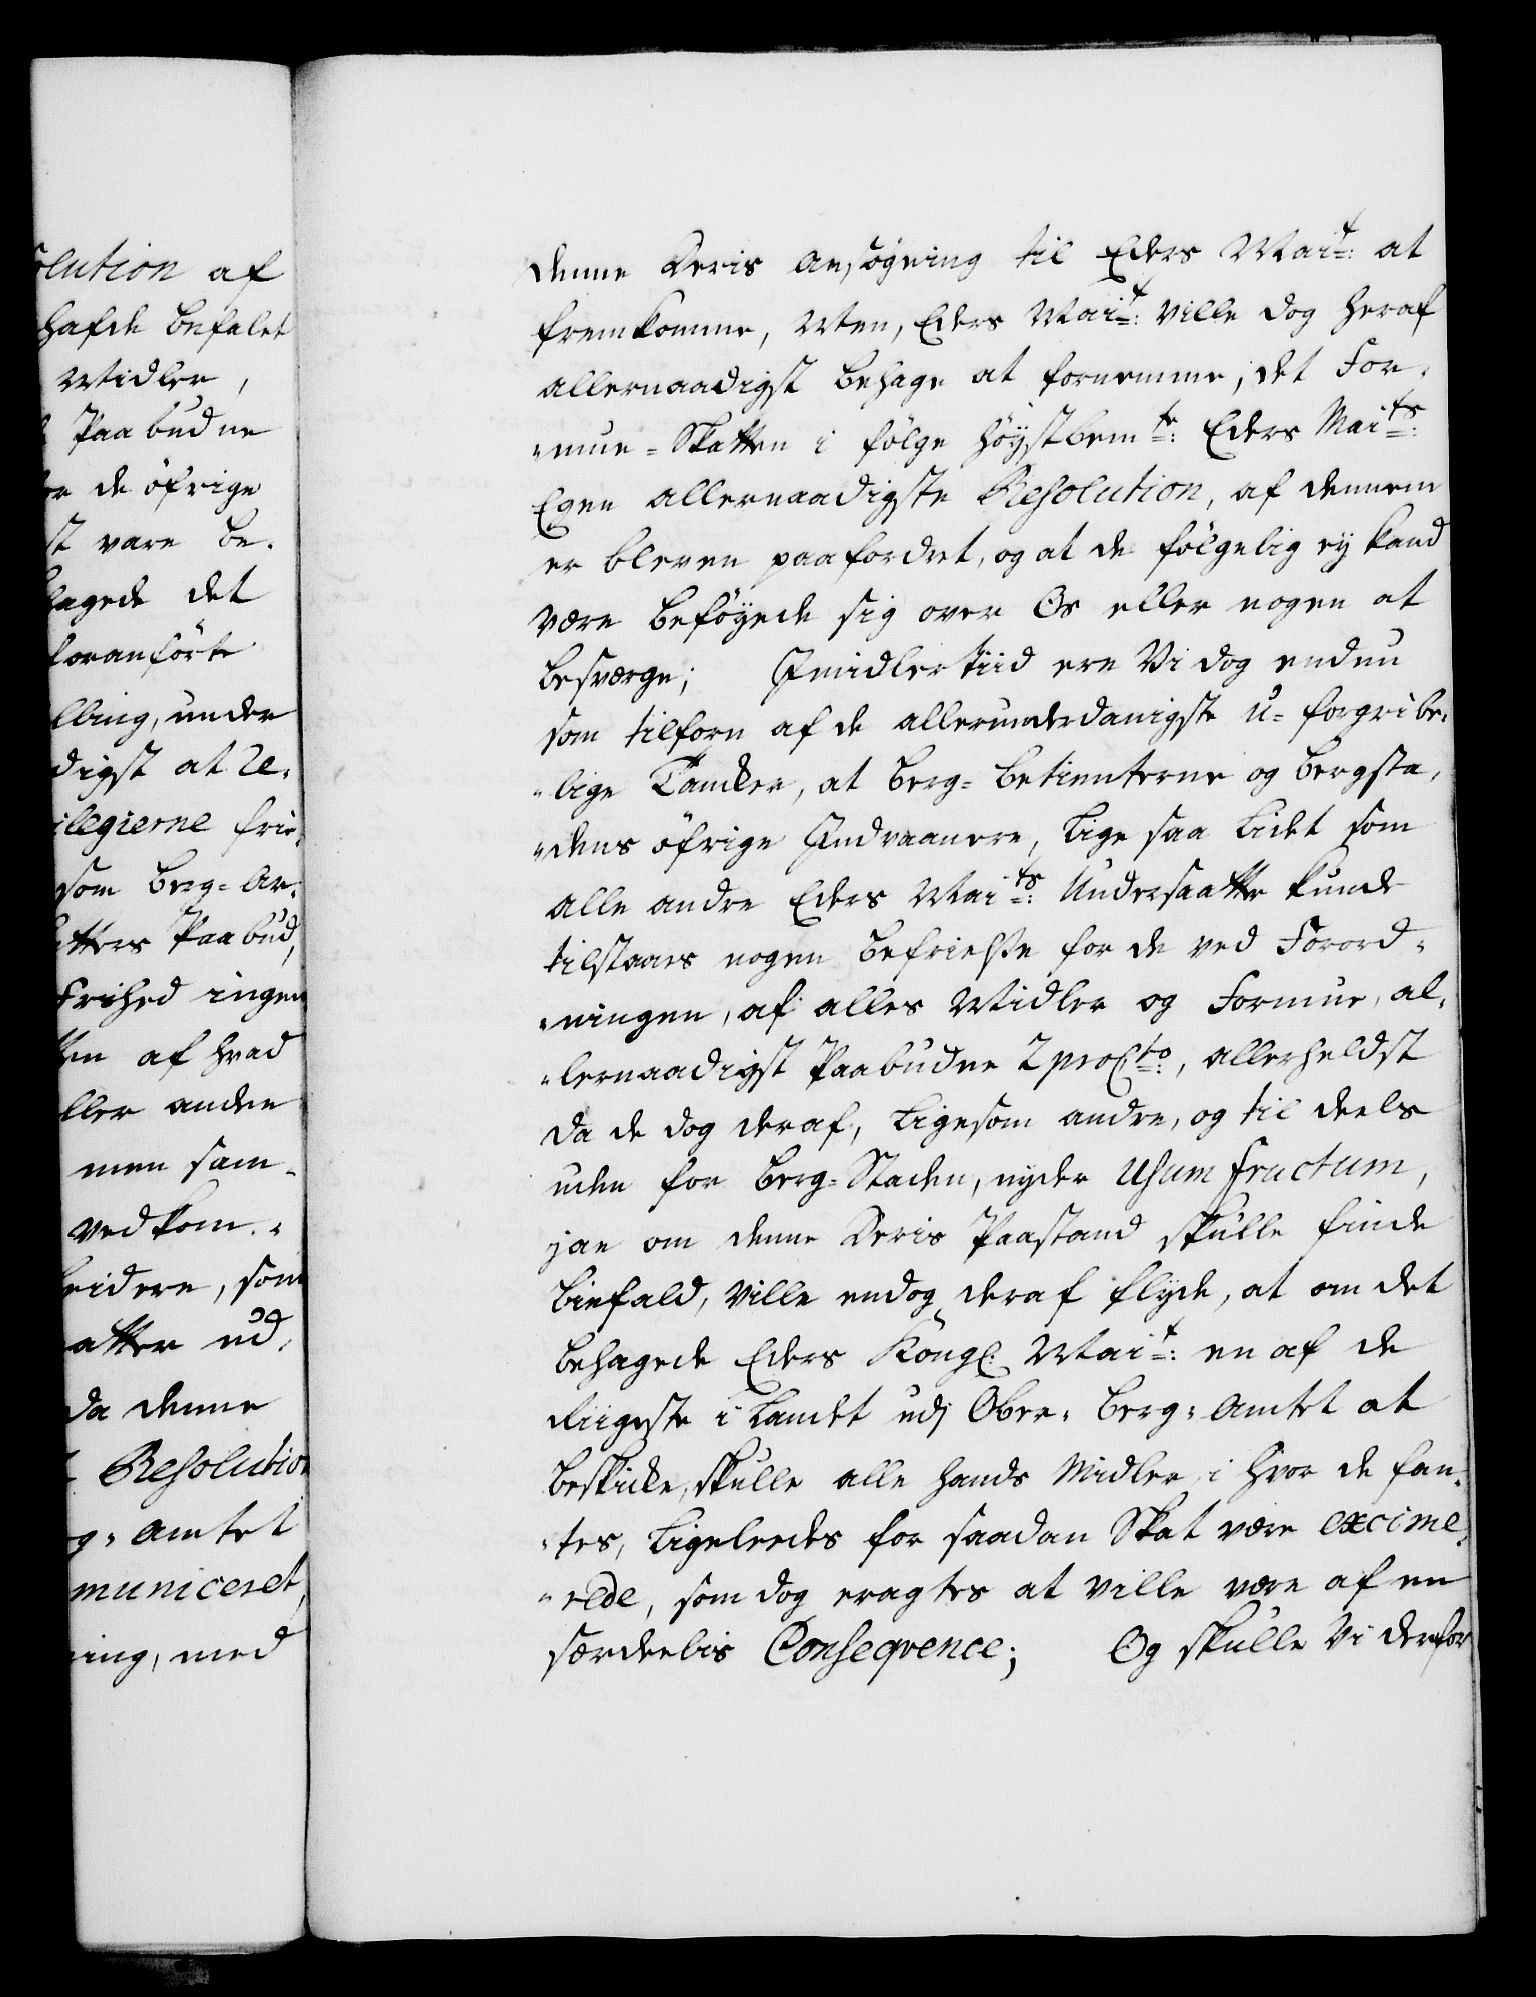 olution af
hafde befalet
Midler,
Paabudne
de öfrige
st vare be-
hagede det
foranförte
lling, under
digst at re-
ilegierne frie,
som Berg-Ar-
Paabud,
Frihed ingen
af hvad
ller anden
men sam-
vedkom-
eidere, som
atter ud,
da denne
Resolution
g-Amtet
municeret,
ing, med
denne Deris Ansögning til Eders Mait: at
fremkomme, Men, Eders Mait: ville dog heraf
allernaadigst behage at fornemme, det For-
-mue-Skatten i fölge höystbemte: Eders Maits:
Egen allernaadigste Resolution, af dennem
er bleven paafordret, og at de fölgelig ey kand
være beföyede sig over Os eller nogen at
besværge; Imidlertiid ere Vi dog endnu
som tilforn af de allerunderdanigste u-forgribe-
-lige Tancker, at Berg-betienterne og Bergsta-
-dens öfrige Indvaanere, lige saa lidet som
alle andre Eders Maits: Undersaatter kunde
tilstaaes nogen befrielse for de ved Forord-
-ningen, af alles Midler og Formue, al-
-lernaadigst Paabudne 2 proCto:, allerheldst
da de dog deraf, ligesom andre, og til deels
uden for Berg-Staden, nyder Usum fructum,
jae om denne Deris Paastand skulle finde
biefald, ville endog deraf flyde, at om det
behagede Eders Kongl: Mait: en af de
Riigeste i Landet udj Ober-Berg-Amtet at
beskicke, skulle alle hands Midler, i hvor de fan-
-tes, ligeleedes for saadan Skat være excime-
-rede, som dog eragtes at ville være af en
særdeelis Conseqvence; Og skulle Vi derfor